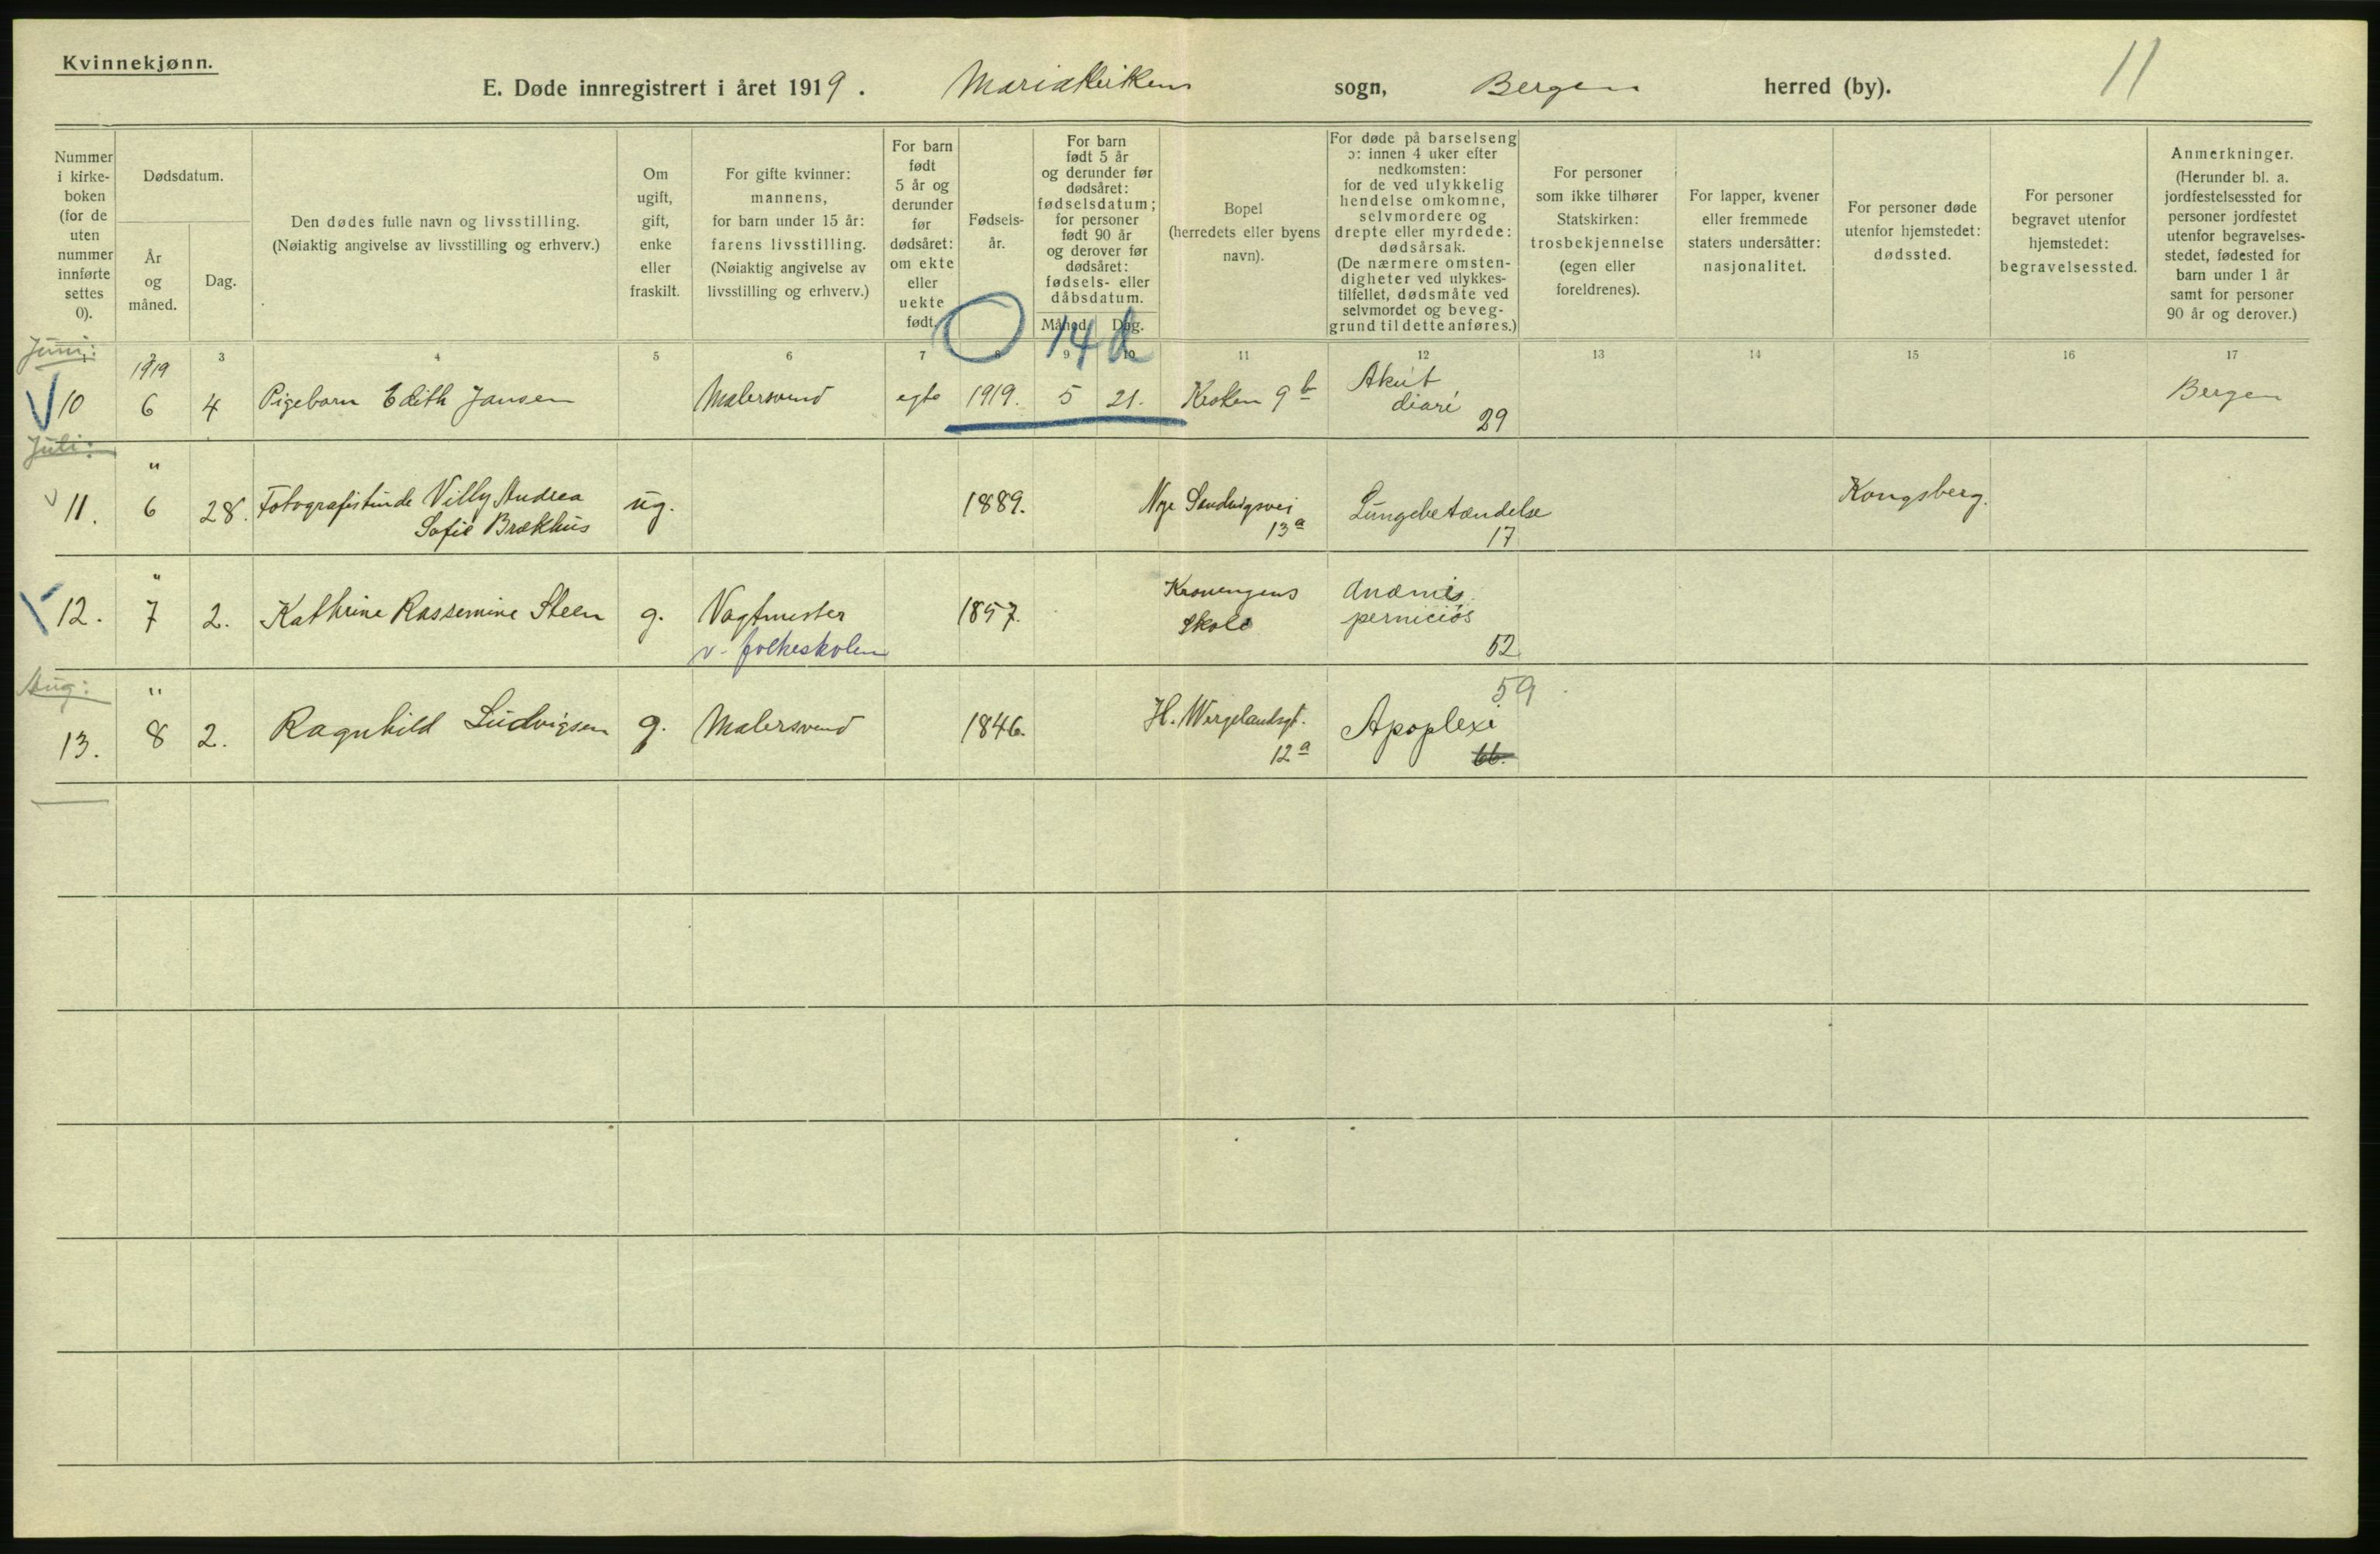 Kvinnekjønn.
E. Døde innregistrert i året 1919. Mariakirkens sogn, Bergen herred (by). 11
Nummer i kirke-boken (for de uten nummer innførte settes 0).
Dødsdatum.
År og måned.
Dag.
Den dødes fulle navn og livsstilling.
(Nøiaktig angivelse av livsstilling og erhverv.)
Om ugift, gift, enke eller fraskilt.
For gifte kvinner: mannens, for barn under 15 år: farens livsstilling. (Nøiaktig angivelse av livsstilling og erhverv.)
For barn født 5 år og derunder før dødsåret: om ekte eller uekte født.
Fødsels-år.
For barn født 5 år og derunder før dødsåret: fødselsdatum; for personer født 90 år og derover før dødsåret: fødsels- eller dåbsdatum.
Måned. Dag.
Bopel (herredets eller byens navn).
For døde på barselseng ɔ: innen 4 uker efter nedkomsten: for de ved ulykkelig hendelse omkomne, selvmordere og drepte eller myrdede: dødsårsak. (De nærmere omsten-digheter ved ulykkes-tilfellet, dødsmåte ved selvmordet og beveg-grund til dette anføres.)
For personer som ikke tilhører Statskirken: trosbekjennelse (egen eller foreldrenes).
For lapper, kvener eller fremmede staters undersåtter: nasjonalitet.
For personer døde utenfor hjemstedet: dødssted.
For personer begravet utenfor hjemstedet: begravelsessted.
Anmerkninger. (Herunder bl. a. jordfestelsessted for personer jordfestet utenfor begravelses-stedet, fødested for barn under 1 år samt for personer 90 år og derover.)
0 14 d
1 2 3 4 5 6 7 8 9 10 11 12 13 14 15 16 17
Juni:
1919
10 6 4 Pigebarn Edith Jansen Malersvend egte 1919. 5 21. Kroken 9 b Akut diaré 29 Bergen
Juli:
"
11. 6 28. Fotografistinde Villy Andrea Sofie Brækhus ug. 1889. Nye Sandvigsvei 13 a Lungebetændelse 17 Kongsberg.
"
12. 7 2. Kathrine Rassemine Steen g. Vagtmester v. folkeskolen 1857. Kronengens Skole Anæmis perniciøs 52
Aug:
"
13. 8 2. Ragnhild Ludvigsen g. Malersvend 1846. H. Wergelandsgt. 12 a Apoplexi 59 66.